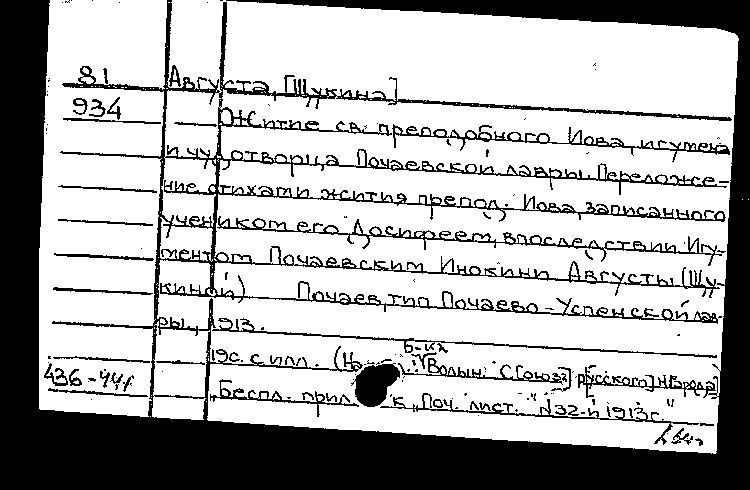 81
Августа, [Щукина]
934
Житие св. преподобного Иова, игумена
и чудотворца Почаевской лавры. Переложе-
ние стихами жития препод. Иова, записанного
учеником его Досифеем, впоследствии Игу-
меном Почаевским Инокини Августы (Щу-
киной) Почаев, тип. Почаево-Успенской лав-
ры, 1913.
19с. с илл. (На : Б-ка "Волын. С[оюза] р[усского] н[арода]
436-441
"Беспл. прил к "Поч. лист." №32-й 1913г."